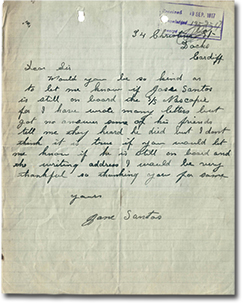 19 SEP. 1917
74 Christina St.
Docks
Cardiff
Dear Sir
Would you be so kind as
to let me know if Jose Santos
is still on board the S/S Nascopie
for I have wrote many letters but
got no answer some of his friends
tell me they heard he died but I don't
think it is true if you would let
me know if he is still on board and
his writing address I would be very
thankful so thanking you for same
yours
Jane Santos